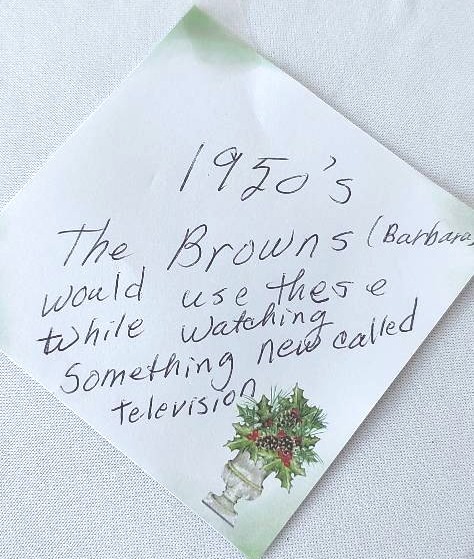 1950's
The Browns (Barbara)
would use these
while watching
Something new called
television